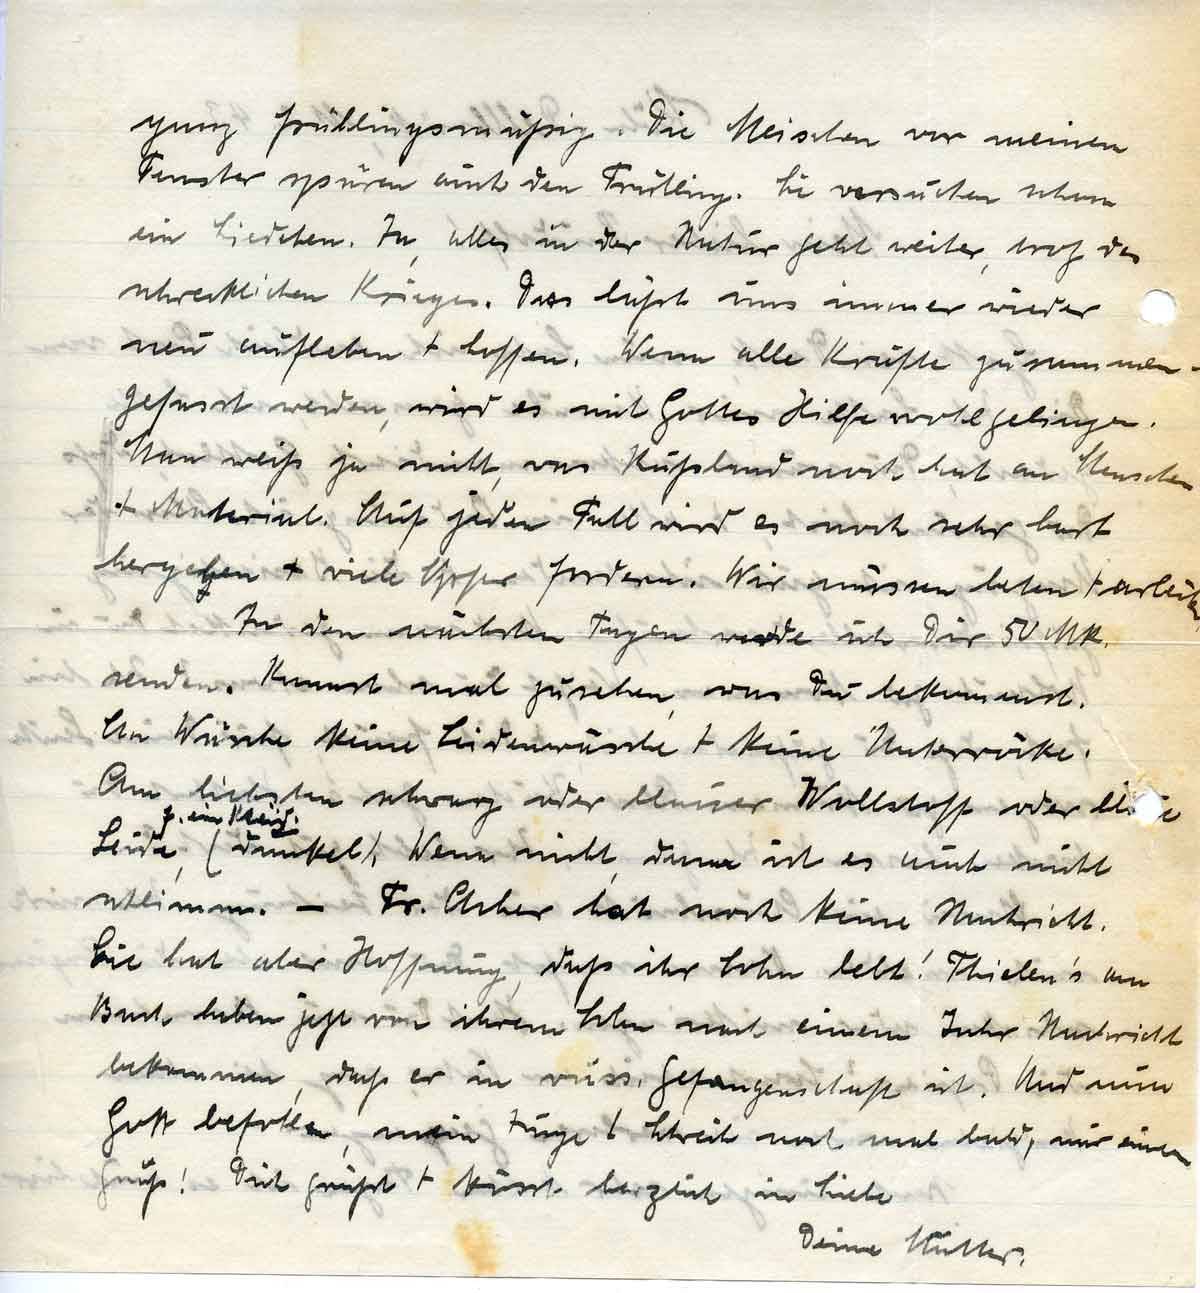 ganz frühlingsmäßig. Die Meischen vor meinem
Fenster spüren auch den Frühling. Sie versuchen schon
ein Liedchen. Ja, alles in der Natur geht weiter, trotz des
schrecklichen Krieges. Das läßt uns immer wieder
neu aufleben + hoffen. Wenn alle Kräfte zusammen-
gefasst werden, wird es mit Gottes Hilfe wohl gelingen.
Man weiß ja nicht, was Rußland noch hat an Menschen
+ Material. Auf jeden Fall wird es noch sehr hart
hergehen + viele Opfer fordern. Wir müssen beten + arbeiten
In den nächsten Tagen werde ich Dir 50 Mk.
senden. Kannst mal zusehen, was Du bekommst.
An Wäsche keine Seidenwäsche + keine Unterröcke.
Am liebsten schwarz oder blauer Wollstoff oder blaue
f. ein Kleid.
Seide, (dunkel). Wenn nicht, dann ist es auch nicht
schlimm. — Fr. Acher hat noch keine Nachricht.
Sie hat aber Hoffnung, daß ihr Sohn lebt! Thielen's am
Bach haben jetzt von ihrem Sohn nach einem Jahr Nachricht
bekommen, daß er in russ. Gefangenschaft ist. Und nun
Gott befohlen, mein Junge! Schreib noch mal bald, nur einen
Gruß! Dich grüßt + küsst herzlich in Liebe
Deine Mutter.